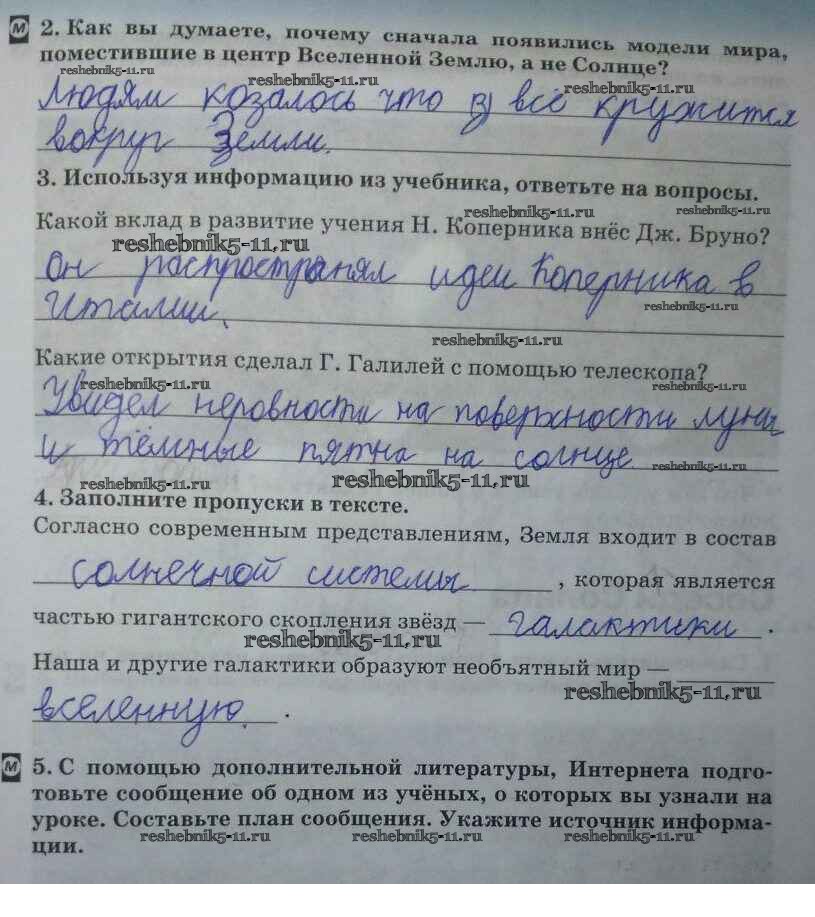 М 2. Как вы думаете, почему сначала появились модели мира,
поместившие в центр Вселенной Землю, а не Солнце?
reshebnik5-11.ru reshebnik5-11.ru reshebnik5-11.ru
Людям козалось что всё кружится
вокруг Земли.
3. Используя информацию из учебника, ответьте на вопросы.
reshebnik5-11.ru reshebnik5-11.ru
Какой вклад в развитие учения Н. Коперника внёс Дж. Бруно?
reshebnik5-11.ru
Он распространял идеи Коперника в
reshebnik5-11.ru
Италии.
reshebnik5-11.ru
Какие открытия сделал Г. Галилей с помощью телескопа?
reshebnik5-11.ru reshebnik5-11.ru
Увидел неровности на поверхности луны
и тёмные пятна на солнце
reshebnik5-11.ru
reshebnik5-11.ru reshebnik5-11.ru
4. Заполните пропуски в тексте.
Согласно современным представлениям, Земля входит в состав
солнечной системы , которая является
частью гигантского скопления звёзд — галактики .
reshebnik5-11.ru
Наша и другие галактики образуют необъятный мир —
reshebnik5-11.ru
вселенную .
М 5. С помощью дополнительной литературы, Интернета подго-
товьте сообщение об одном из учёных, о которых вы узнали на
уроке. Составьте план сообщения. Укажите источник информа-
reshebnik5-11.ru reshebnik5-11.ru reshebnik5-11.ru
ции.